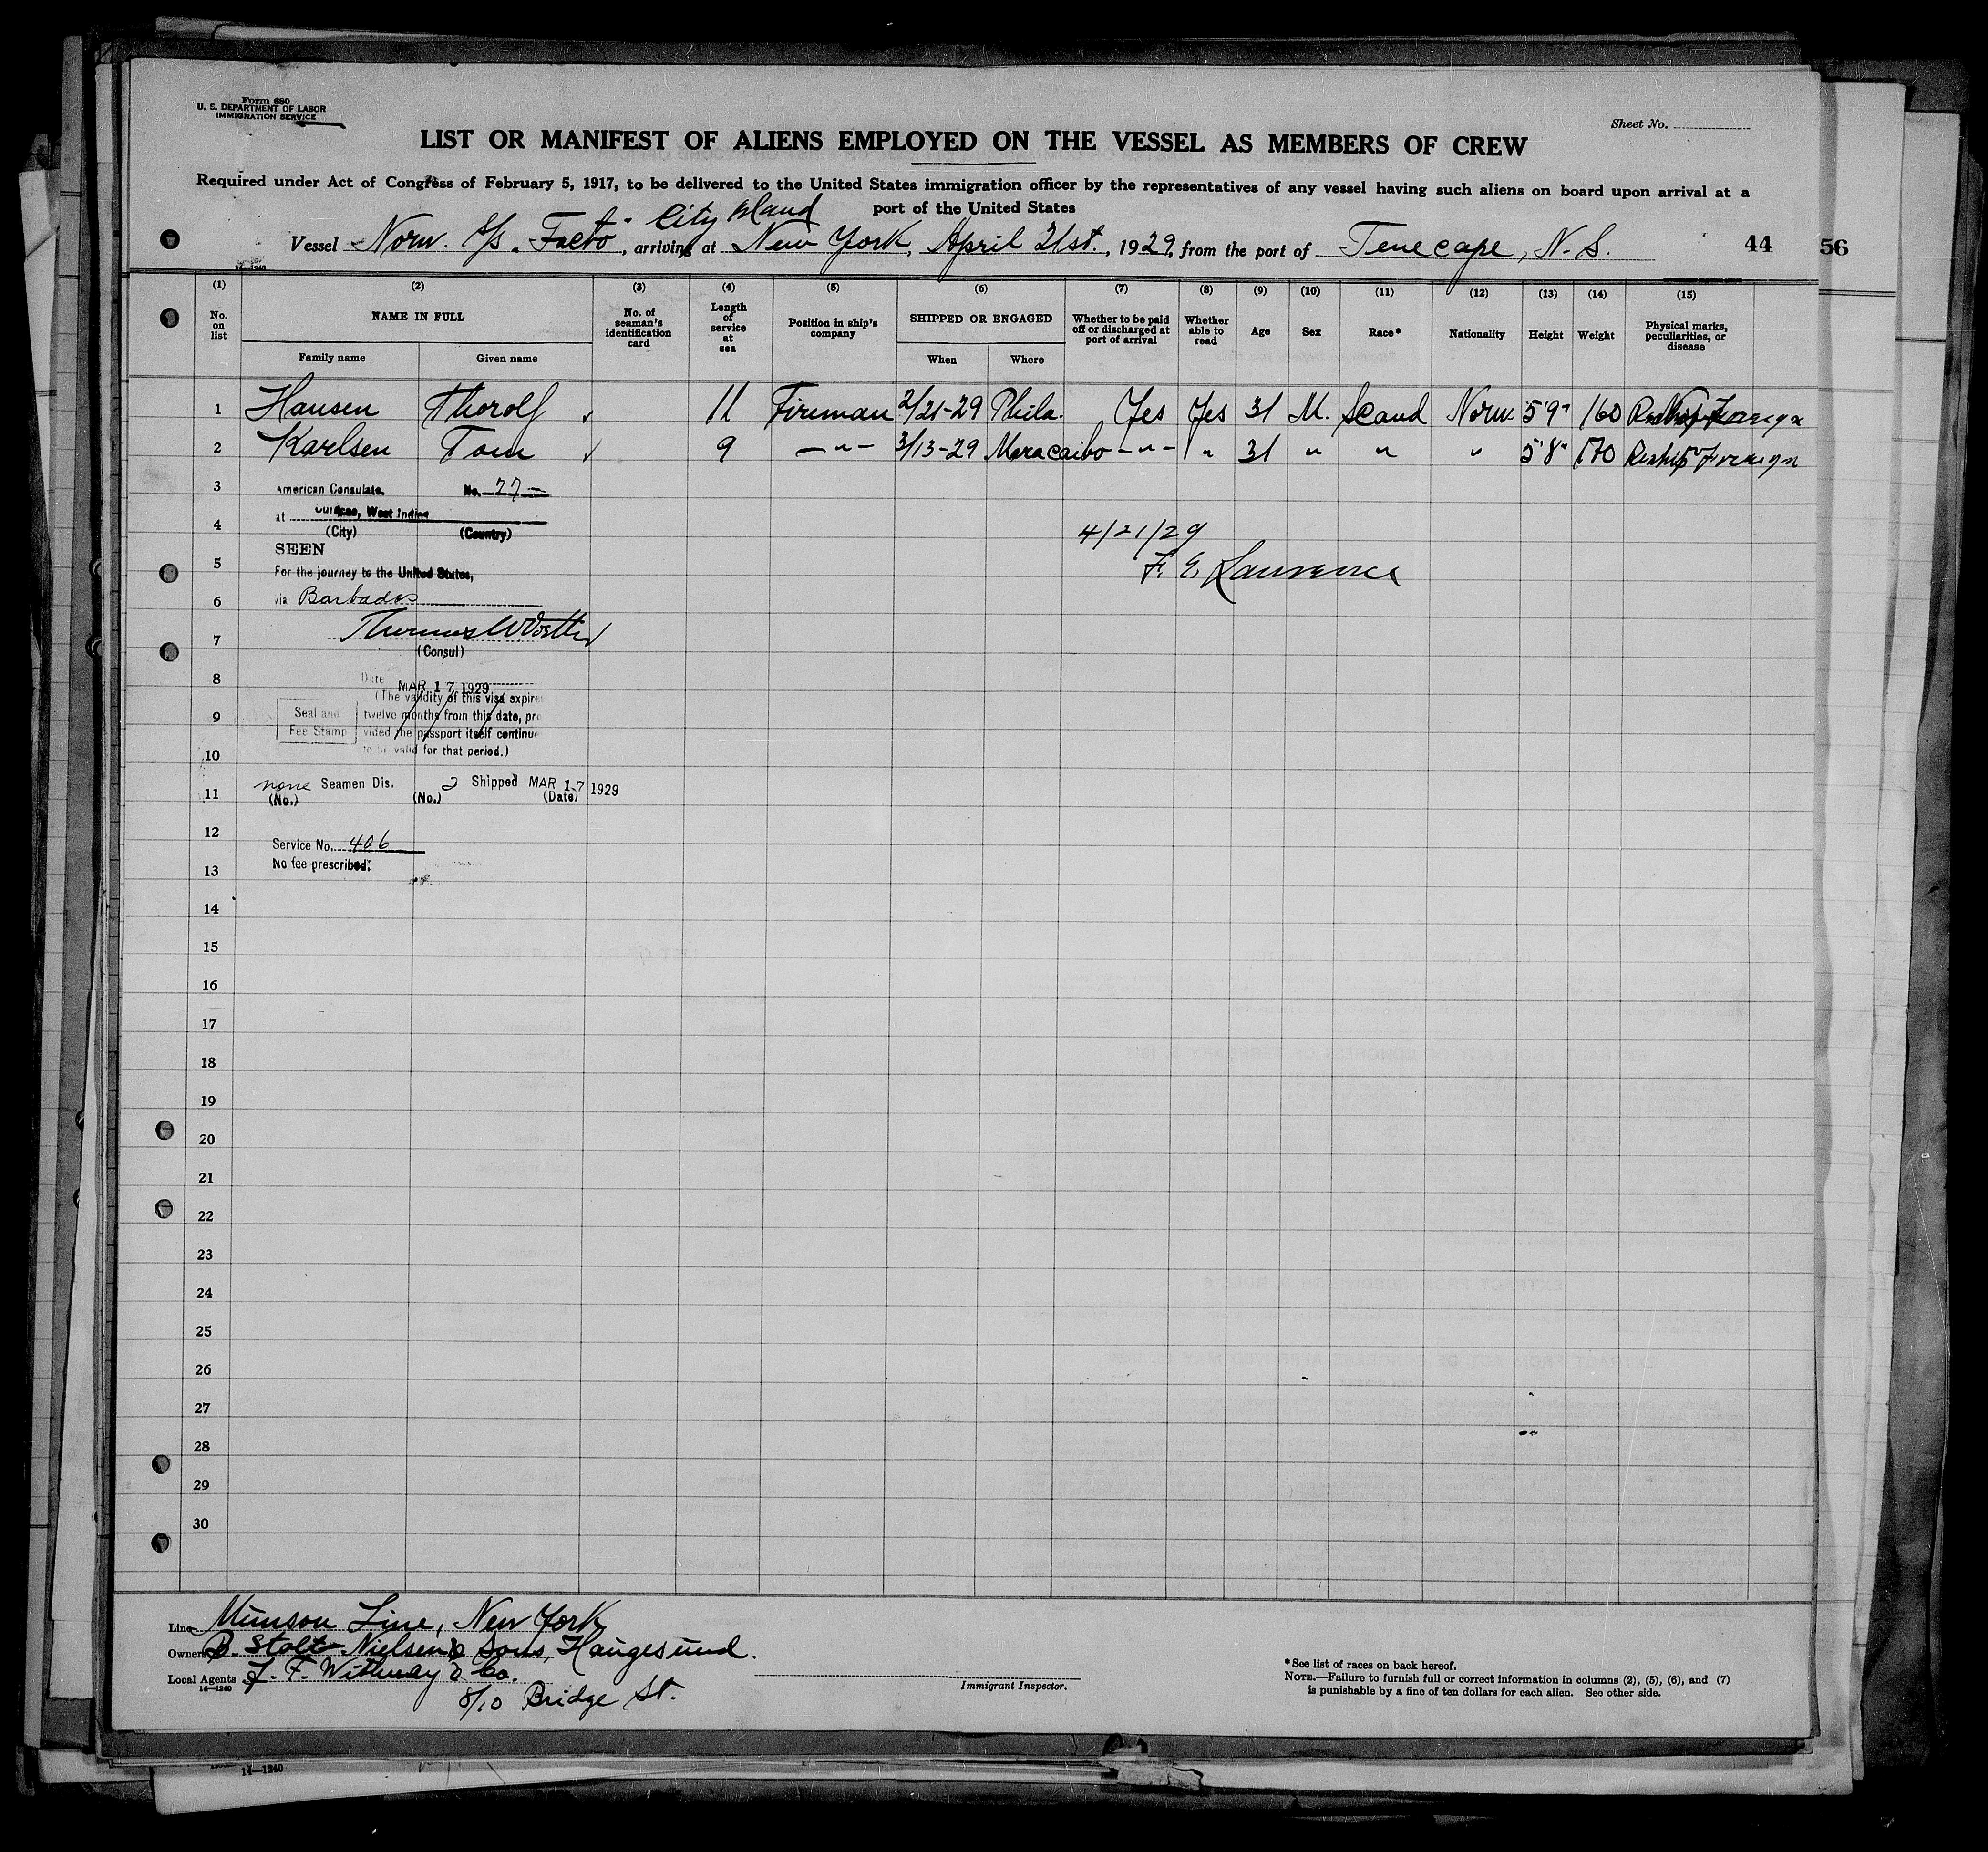 Form 680
U. S. DEPARTMENT OF LABOR
IMMIGRATION SERVICE
Sheet No.
LIST OR MANIFEST OF ALIENS EMPLOYED ON THE VESSEL AS MEMBERS OF CREW
Required under Act of Congress of February 5, 1917, to be delivered to the United States immigration officer by the representatives of any vessel having such aliens on board upon arrival at a
port of the United States
City Island
Vessel Norw. S/s. Facto, arriving at New York, April 21st., 1929, from the port of Tenecape, N.S. 44 56
14—1240
(1) (2) (3) (4) (5) (6) (7) (8) (9) (10) (11) (12) (13) (14) (15)
No. on list NAME IN FULL No. of seaman's identification card Length of service at sea Position in ship's company SHIPPED OR ENGAGED Whether to be paid off or discharged at port of arrival Whether able to read Age Sex Race* Nationality Height Weight Physical marks, peculiarities, or disease
Family name Given name When Where
1 Hansen Thorolf ✓ 11 Fireman 2/21-29 Phila. Yes Yes 31 M. Scand Norw 5'9" 160
2 Karlsen Tom ✓ 9 —"— 3/13-29 Maracaibo —"— " 31 " " " 5'8" 170 Reship Foreign
3 American Consulate, No. 77—
4 at Curacao, West Indies
(City) (Country)
SEEN
5 For the journey to the United States,
6 via Barbados
4/21/29
F. E. Laurence
7
(Consul)
8 Date MAR 17 1929
(The validity of this visa expires
9 Seal and Fee Stamp twelve months from this date, pro
vided the passport itself continue
10 to be valid for that period.)
11 none Seamen Dis. 2 Shipped MAR 17 1929
(No.) (No.) (Date)
12 Service No. 406
13 No fee prescribed.
14
15
16
17
18
19
20
21
22
23
24
25
26
27
28
29
30
Line Munson Line, New York
Owners B. Stolt-Nielsen & Sons, Haugesund.
Local Agents J. F. Withway & Co.
14—1240
8/10 Bridge St.
Immigrant Inspector.
*See list of races on back hereof.
NOTE.—Failure to furnish full or correct information in columns (2), (5), (6), and (7)
is punishable by a fine of ten dollars for each alien. See other side.
14—1240